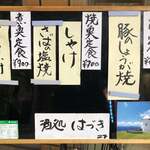 豚のしょうが焼
焼魚定食
¥900
しゃけ
さばの塩焼
煮魚定食
¥900
酒処 はづき